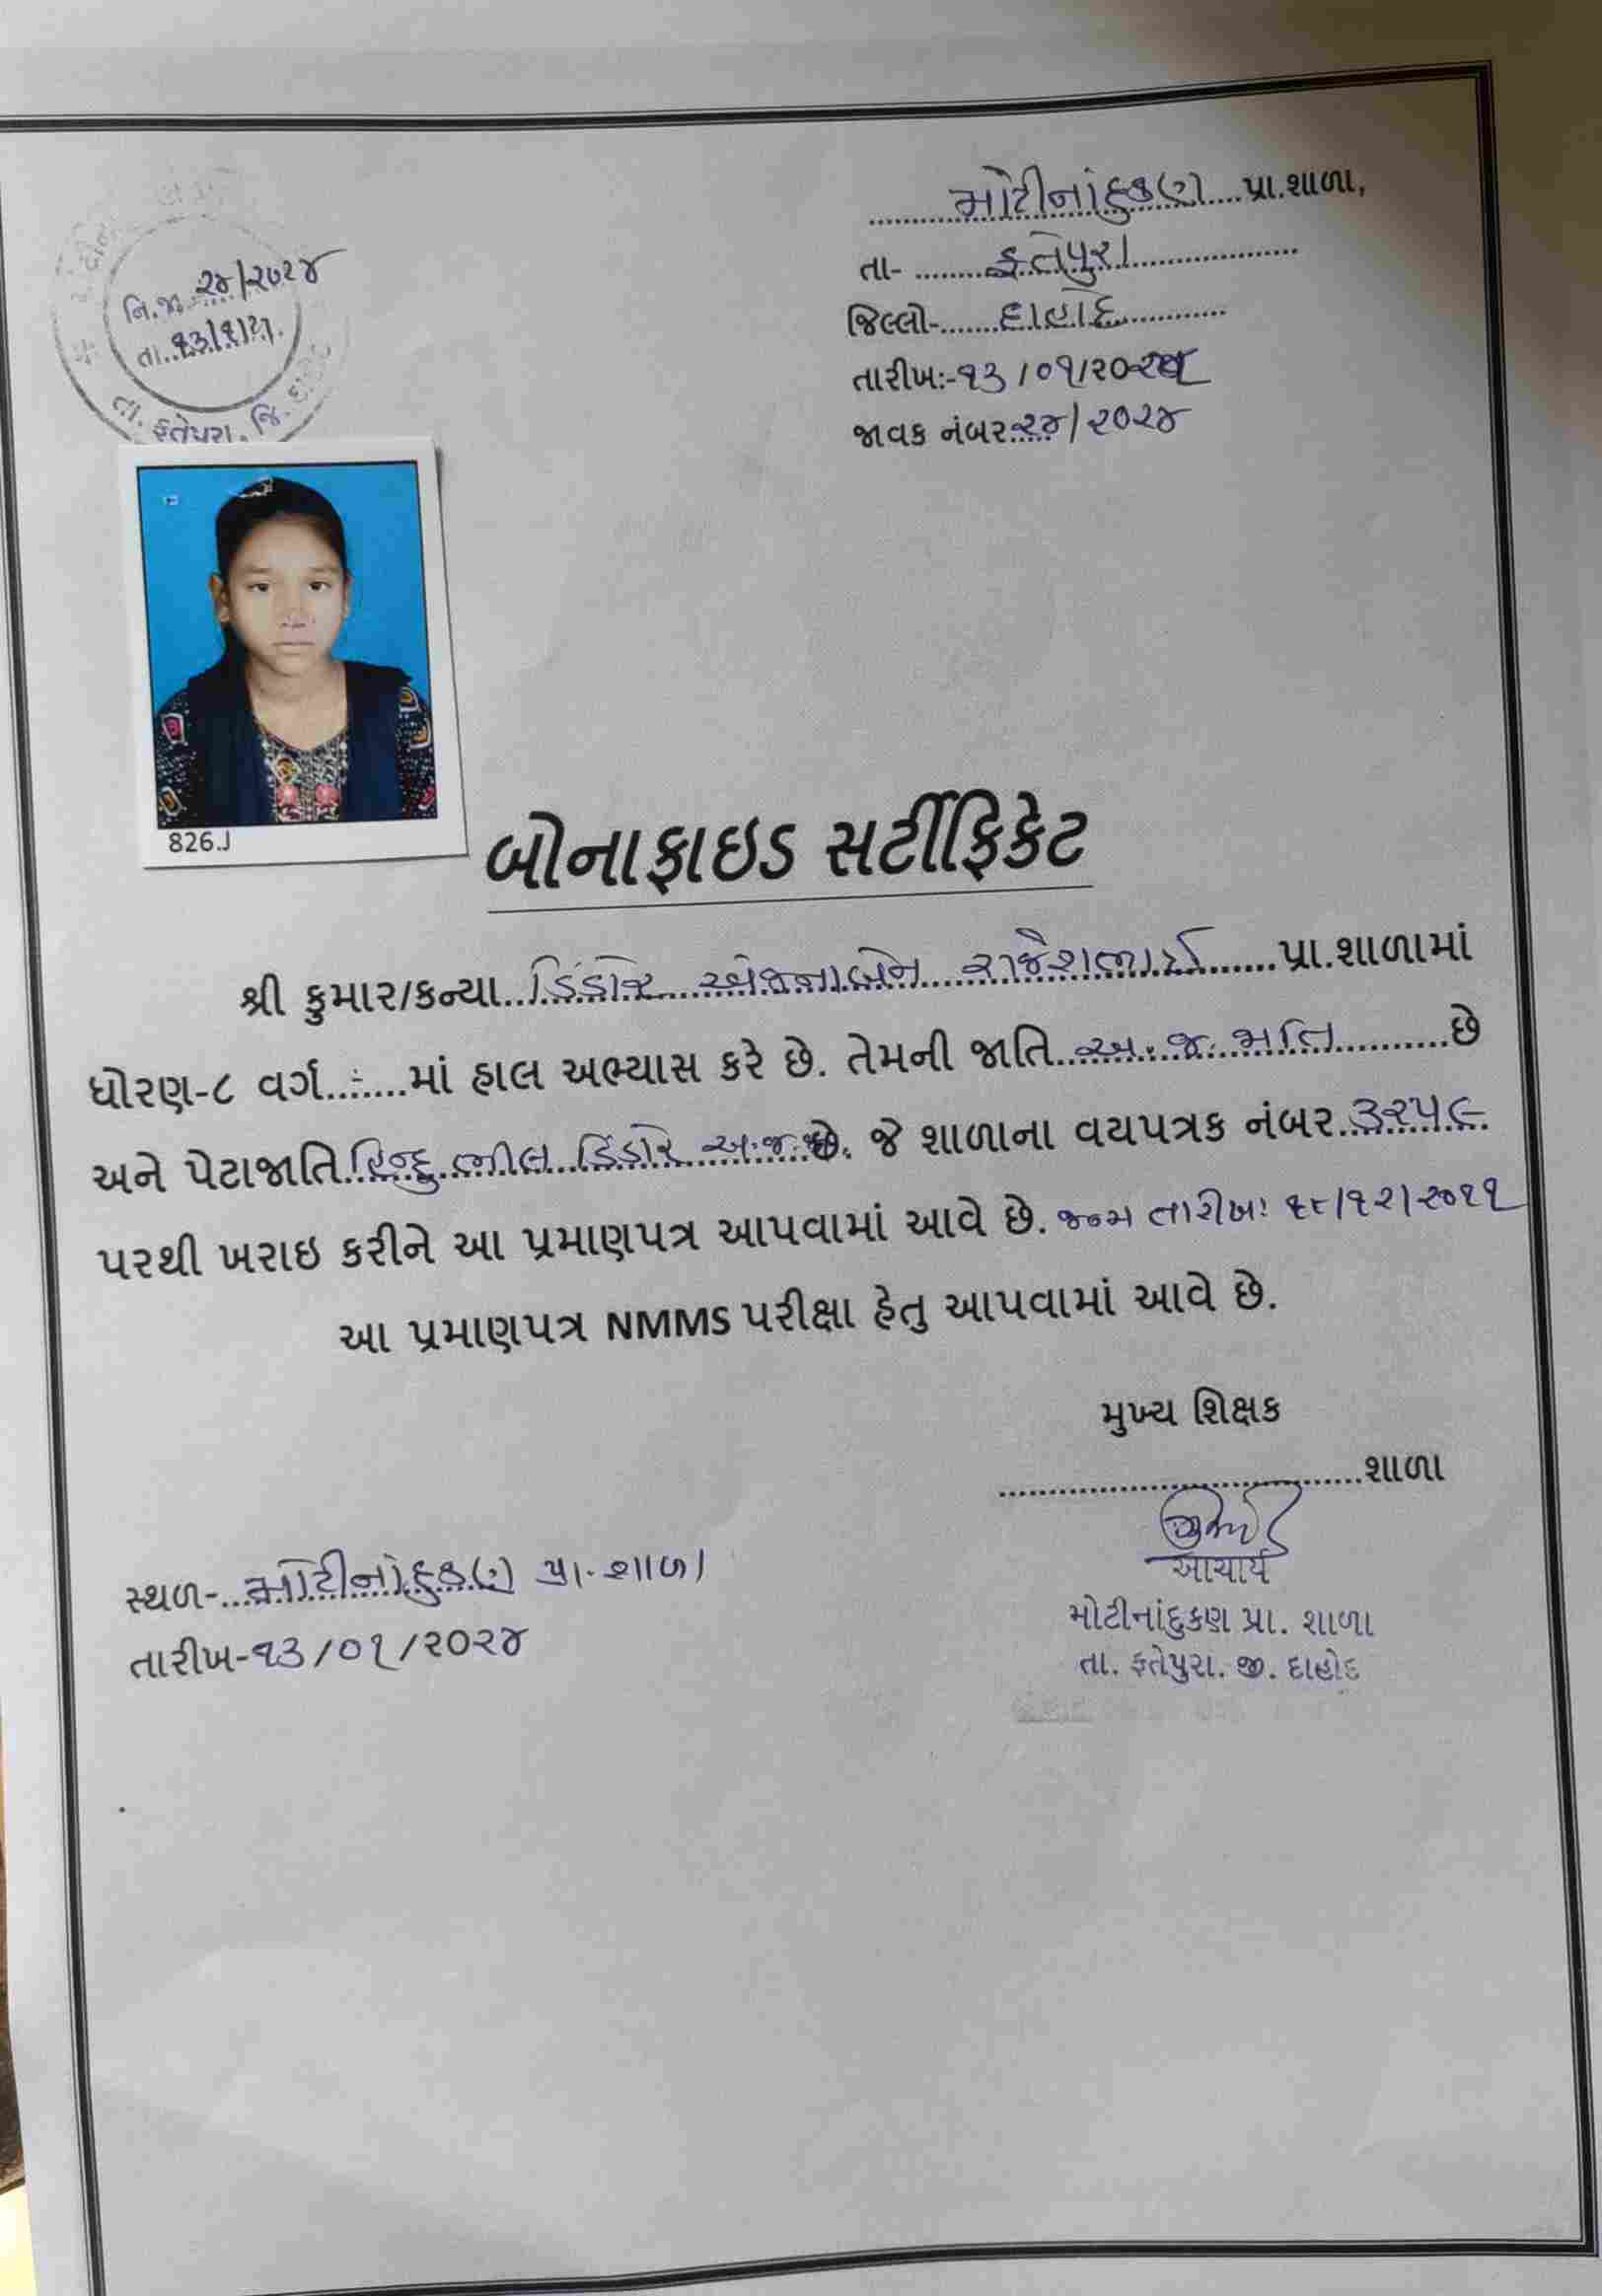 મોટીનાંદુકણ પ્રા.શાળા,
તા- ફતેપુરા
જિલ્લો- દાહોદ
તારીખ:-૧૩/૦૧/૨૦૨૪
જાવક નંબર ૨૪/૨૦૨૪
નિ.જા. ૨૪/૨૦૨૪
તા. ૧૩/૧/
તા. ફતેપુરા. જિ. દાહોદ
826.J
બોનાફાઇડ સર્ટીફિકેટ
શ્રી કુમાર/કન્યા ડિંડોર અંજનાબેન રાજેશભાઈ પ્રા.શાળામાં
ધોરણ-૮ વર્ગ..-....માં હાલ અભ્યાસ કરે છે. તેમની જાતિ અ.જ.જાતિ છે
અને પેટાજાતિ હિન્દુ ભીલ ડિંડોર અ.જ.જા છે. જે શાળાના વયપત્રક નંબર ૩૨૫૯
પરથી ખરાઇ કરીને આ પ્રમાણપત્ર આપવામાં આવે છે. જન્મ તારીખ: ૧૮/૧૨/૨૦૧૧
આ પ્રમાણપત્ર NMMS પરીક્ષા હેતુ આપવામાં આવે છે.
મુખ્ય શિક્ષક
શાળા
આચાર્ય
મોટીનાંદુકણ પ્રા. શાળા
તા. ફતેપુરા. જી. દાહોદ
સ્થળ- મોટીનાંદુકણ પ્રા. શાળા
તારીખ-૧૩/૦૧/૨૦૨૪